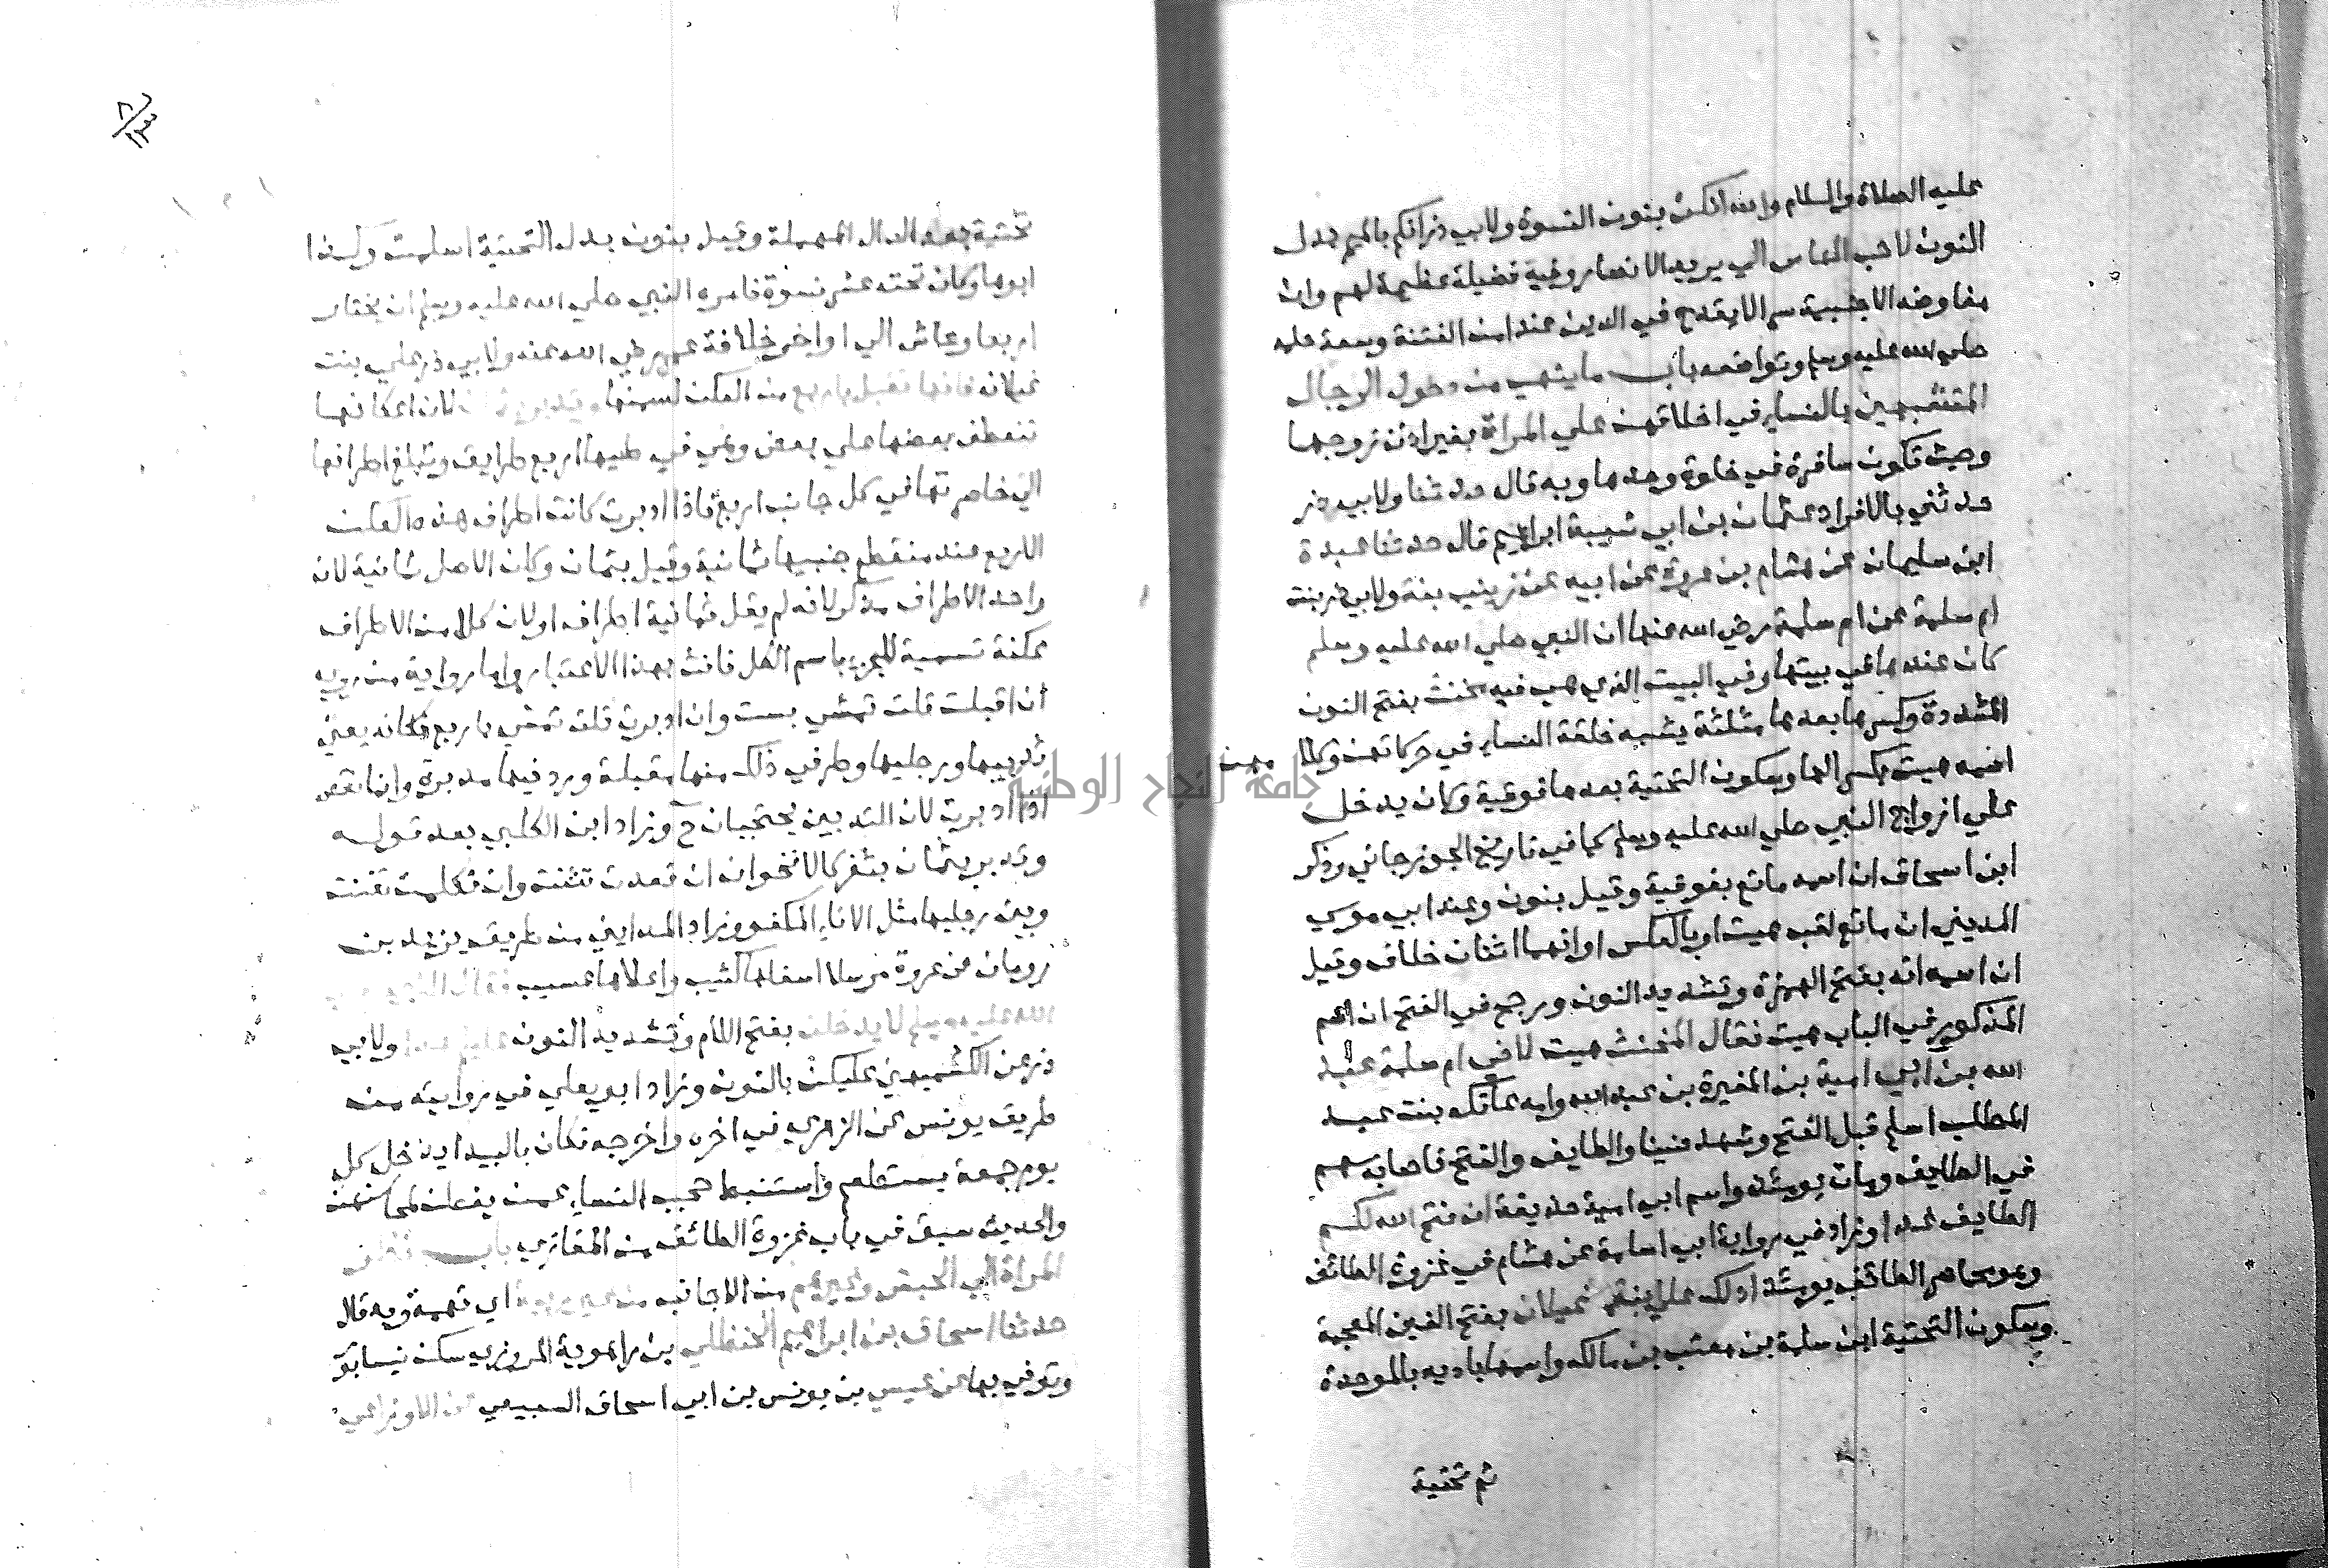 عليه الصلاة والسلام والله انكن بنون النسوة ولابي ذر انكم بالميم بدل
النون لاحب الناس الي يريد الانصار وفيه فضيلة عظيمة لهم وان
مفاوضه الاجنبية سرا لا يقدح في الدين عند امن الفتنة وسعة حلمه
صلى الله عليه وسلم وتواضعه باب ما ينهي من دخول الرجال
المتشبهين بالنساء في اخلاقهن علي المراة بغير اذن زوجها
وحيث تكون مسافرة في خلوة وحدها وبه قال حدثنا ولابي ذر
حدثني بالافراد عثمان بن ابي شيبة ابراهيم قال حدثنا عبدة
ابن سليمان عن هشام بن عروة عن ابيه عن زينب بنة ولابي ذر بنت
ام سلمة عن ام سلمة رضي الله عنها ان النبي صلي الله عليه وسلم
كان عندها في بيتها وفي البيت الذي هي فيه مخنث بفتح النون
المشددة وكسرها بعدها مثلثة يشبه خلقة النساء في حركاتهن وكلامهن
اسمه هيت بكسر الها وسكون التحتية بعدها فوقية وكان يدخل
علي ازواج النبي صلي الله عليه وسلم كما في تاريخ الجوزجاني وذكر
ابن اسحاق ان اسمه ماتع بفوقية وقيل بنون وعند ابي موسي
المديني ان ماتع لقب هيت او بالعكس او انهما اثنان خلاف وقيل
ان اسمه انه بفتح الهمزة وتشديد النون ورجح في الفتح ان اسم
المذكور في الباب هيت فقال المخنث هيت لاخي ام سلمة عبد
الله بن ابي امية بن المغيرة بن عبد الله وامه عاتكه بنت عبد
المطلب اسلم قبل الفتح وشهد حنينا والطايف والفتح فاصابه سهم
في الطايف ومات يومئذ واسم ابي امية حذيفة ان فتح الله لكم
الطايف غدا وزاد في رواية ابي اسامة عن هشام في غزوة الطائف
وهو محاصر الطائف يومئذ ادلك علي ابنة غيلان بفتح الغين المعجمة
وسكون التحتية ابن سلمة بن معتب بن مالك واسمها باديه بالموحدة
ثم تحتية
تحتية بعد الدال المهملة وقيل بنون بدل التحتية اسلمت وكذا
ابوها وكان تحته عشر نسوة فامره النبي صلي الله عليه وسلم ان يختار
اربعا وعاش الي اواخر خلافة عمر رضي الله عنه ولابي ذر علي بنت
غيلان فانها تقبل باربع من العكن لسمنها وتدبر بثمان لان اعكانها
تنعطف بعضها علي بعض وهي في طيها اربع طرايق وتبلغ اطرافها
الي خاصرتها في كل جانب اربع فاذا ادبرت كانت اطراف هذه العكن
الاربع عند منقطع جنبيها ثمانية وقيل بثمان وكان الاصل ثمانية لان
واحد الاطراف مذكر لانه لم يقل ثمانية اطراف او لان كلا من الاطراف
عكنة تسمية للجزء باسم الكل فانث بهذا الاعتبار واما رواية من روي
ان اقبلت قلت تمشي بست وان ادبرت قلت تمشي باربع فكانه يعني
ثدييها ورجليها وطرفي ذلك منها مقبلة وردفيها مدبرة وانما نقص
اذا ادبرت لان الثديين يحتجبان ح وزاد ابن الكلبي بعد قوله
وتدبر بثمان بثغر كالاقحوان ان قعدت تثنت وان تكلمت تغنت
وبين رجليها مثل الاناء المكفو وزاد المدايني من طريق يزيد بن
رومان عن عروة مرسلا اسفلها كثيب واعلاها عسيب فقال النبي
الله عليه وسلم لا يدخلن بفتح اللام وتشديد النون عليكم هذا ولابي
ذر عن الكشميهني عليكن بالنون وزاد ابو يعلي في روايته من
طريق يونس عن الزهري في اخره واخرجه فكان بالبيداء يدخل كل
يوم جمعة يستطعم واستنبط حجب النساء عمن يفطن لمحاسنهن
والحديث سبق في باب غزوة الطائف من المغازي باب نظر
المراة الي الحبش وغيرهم من الاجانب من غير ريبة اي تهمة وبه قال
حدثنا اسحاق بن ابراهيم الحنظلي بن راهوية المروزي سكن نيسابور
وتوفي بها عن عيسي بن يونس بن ابي اسحاق السبيعي عن الاوزاعي
جامعة النجاح الوطنية